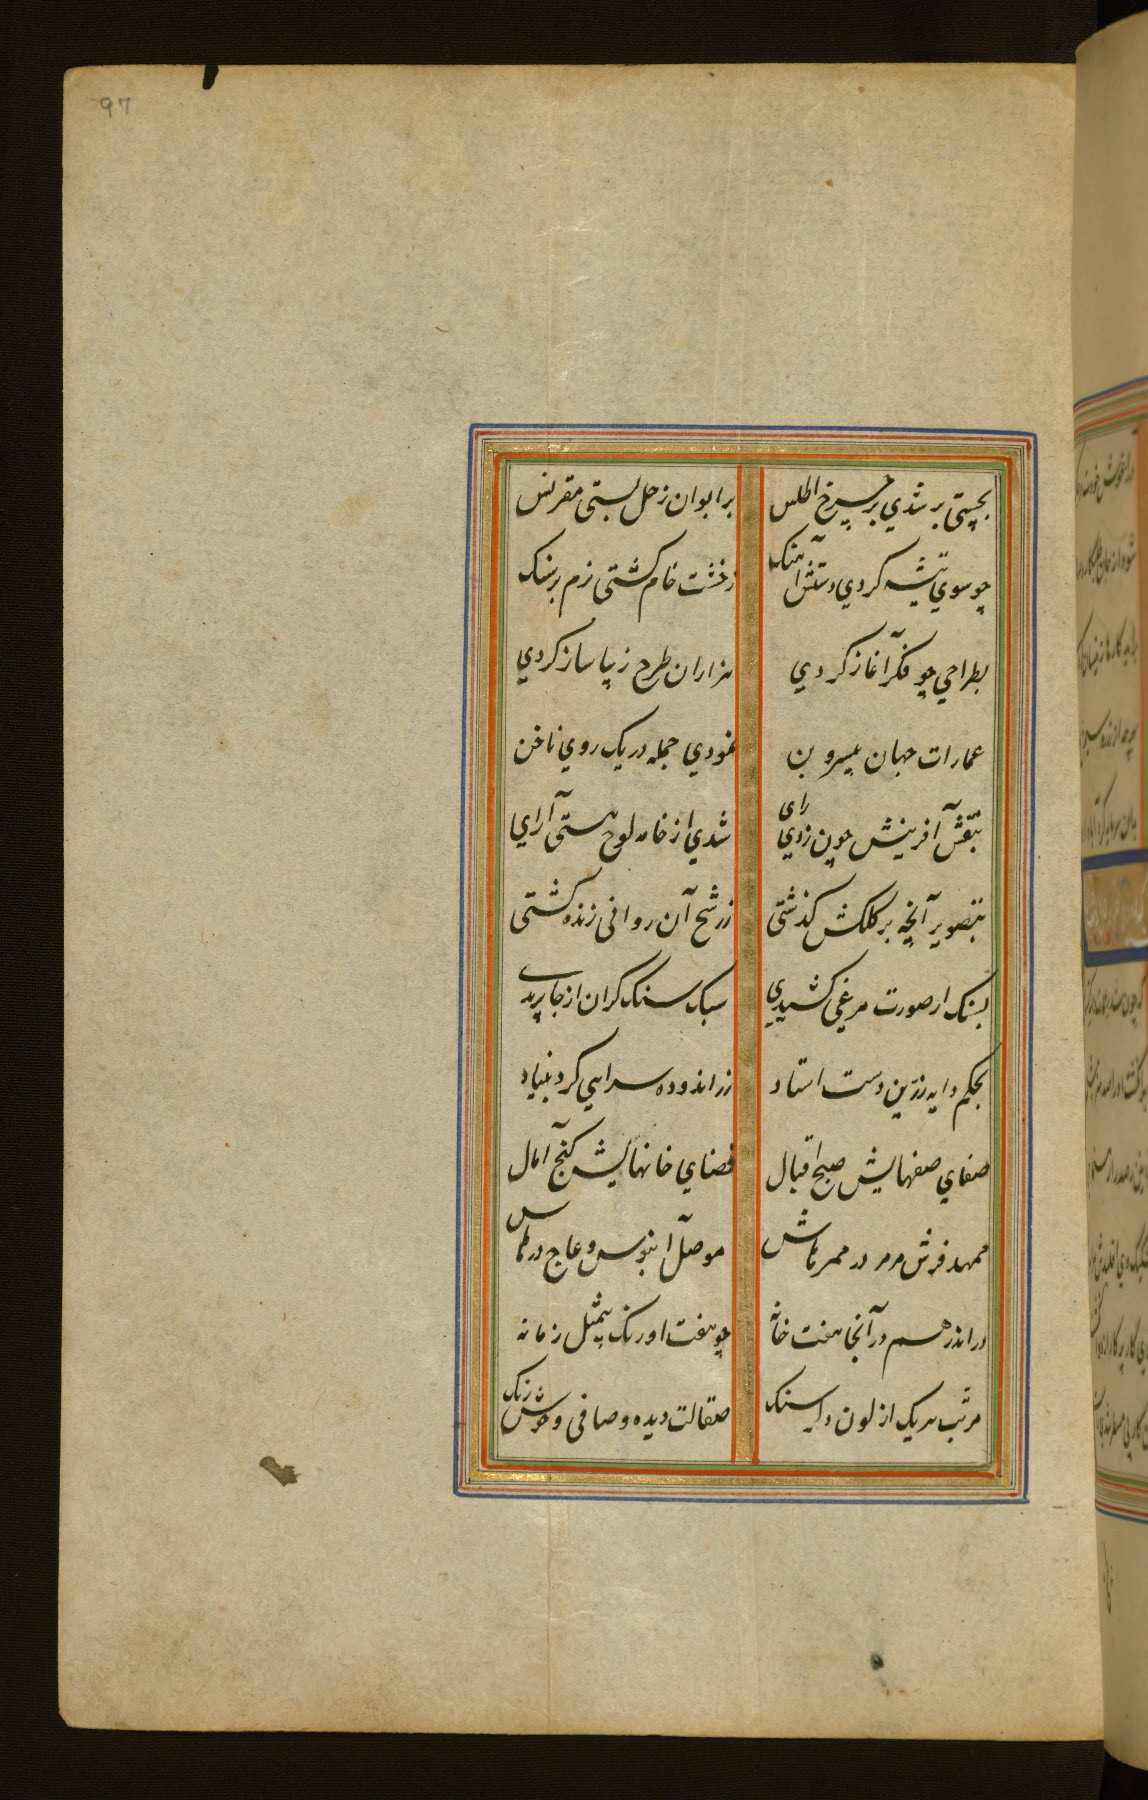 97
بجستی بر شدی بر چرخ اطلس بر ایوان زحل بستی مقرنس
چو سوی تیشه کردی دستش آهنک زخشت خام کشتی نرم بر سنک
بطراحی چو فکر آغاز کردی هزاران طرح زیبا ساز کردی
عمارات جهان بیسرو بن نمودی جمله در یک روی ناخن
بنقش آفرینش چون زدی رای شدی از خامه لوح هستی آرای
بتصویر آنچه بر کلکش کذشتی ز رشح آن روانی زنده کشتی
بسنک ار صورت مرغی کشیدی سبک سنک کران از جا پریدی
بحکم دایه زرین دست استاد زر اندوده سرایی کرد بنیاد
صفای صفهایش صبح اقبال فضای خانهایش کنج آمال
ممهد فرش مرمر در ممرهاش موصل آبنوس و عاج درهاش
در اندر هم در آنجا هفت خانه چو هفت اورنک بیمثل زمانه
مرتب هریک از لون دکر سنک صقالت دیده و صافی و خوش رنک